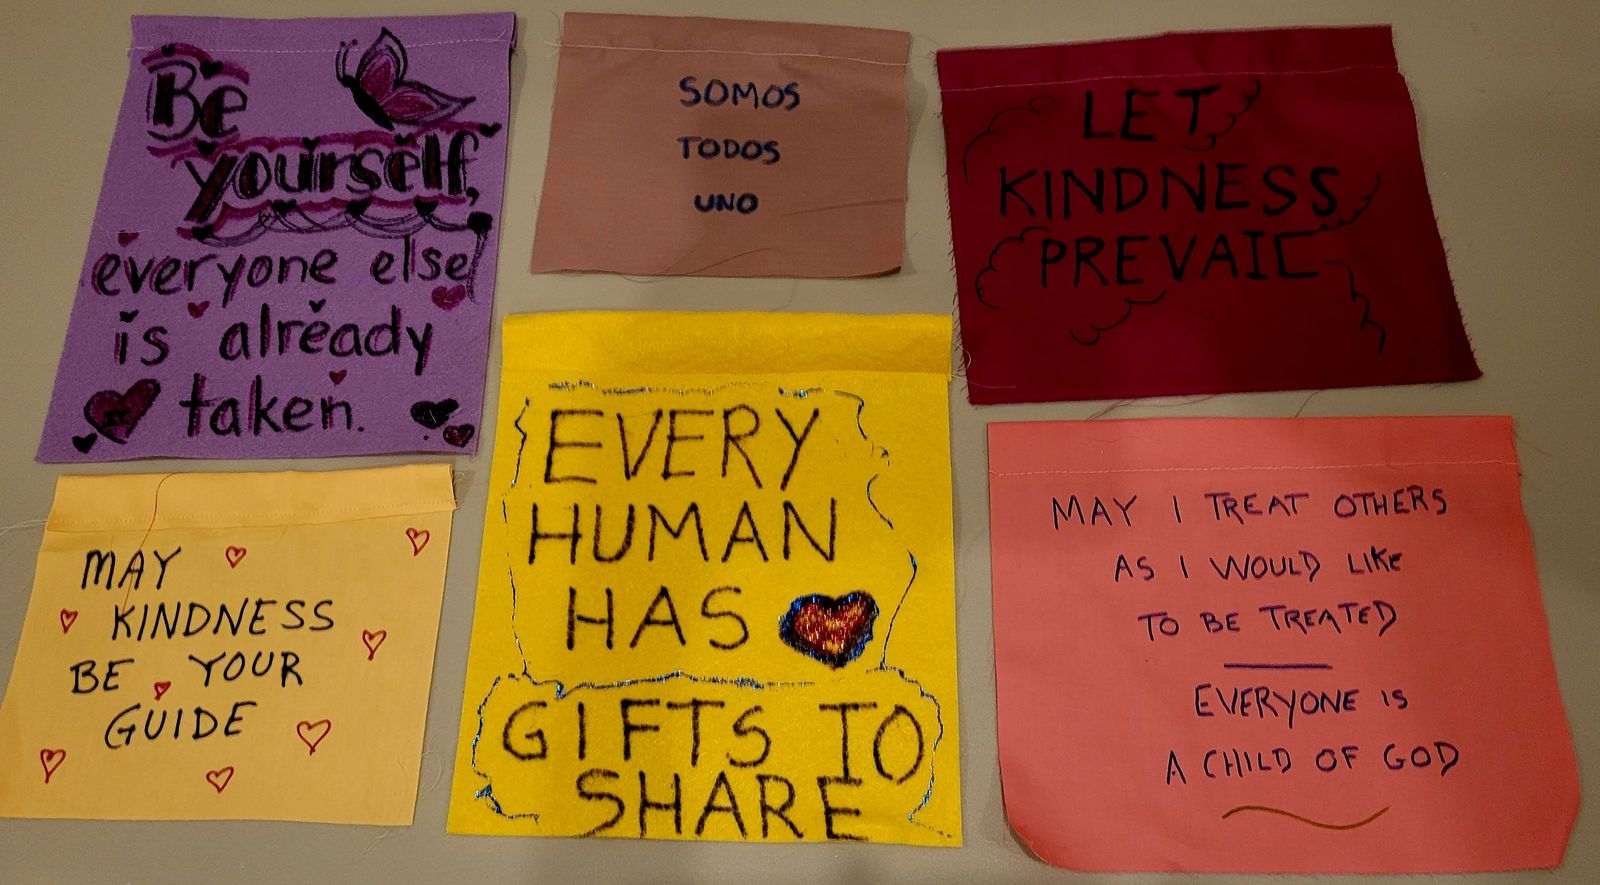 Be
yourself,
everyone else
is already
taken.
SOMOS
TODOS
UNO
LET
KINDNESS
PREVAIL
MAY
KINDNESS
BE YOUR
GUIDE
EVERY
HUMAN
HAS
GIFTS TO
SHARE
MAY I TREAT OTHERS
AS I WOULD LIKE
TO BE TREATED
EVERYONE IS
A CHILD OF GOD